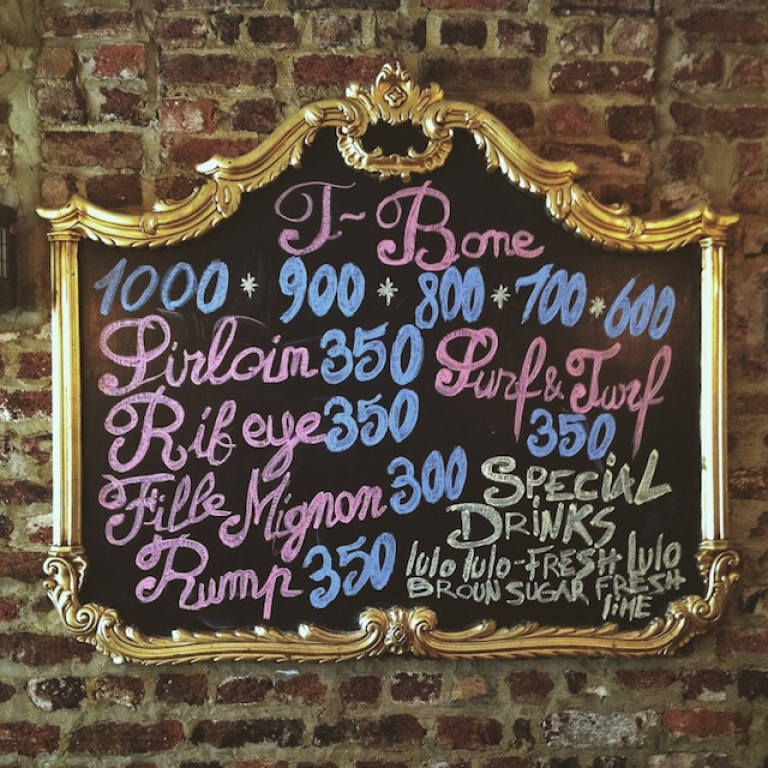 T-Bone
1000 * 900 * 800 * 700 * 600
Sirloin 350
Surf & Turf
350
Rib eye 350
Fille Mignon 300
Rump 350
SPECIAL
DRiNKS
lulo lulo-FRESH lulo
BROUN SUGAR FRESH
liME